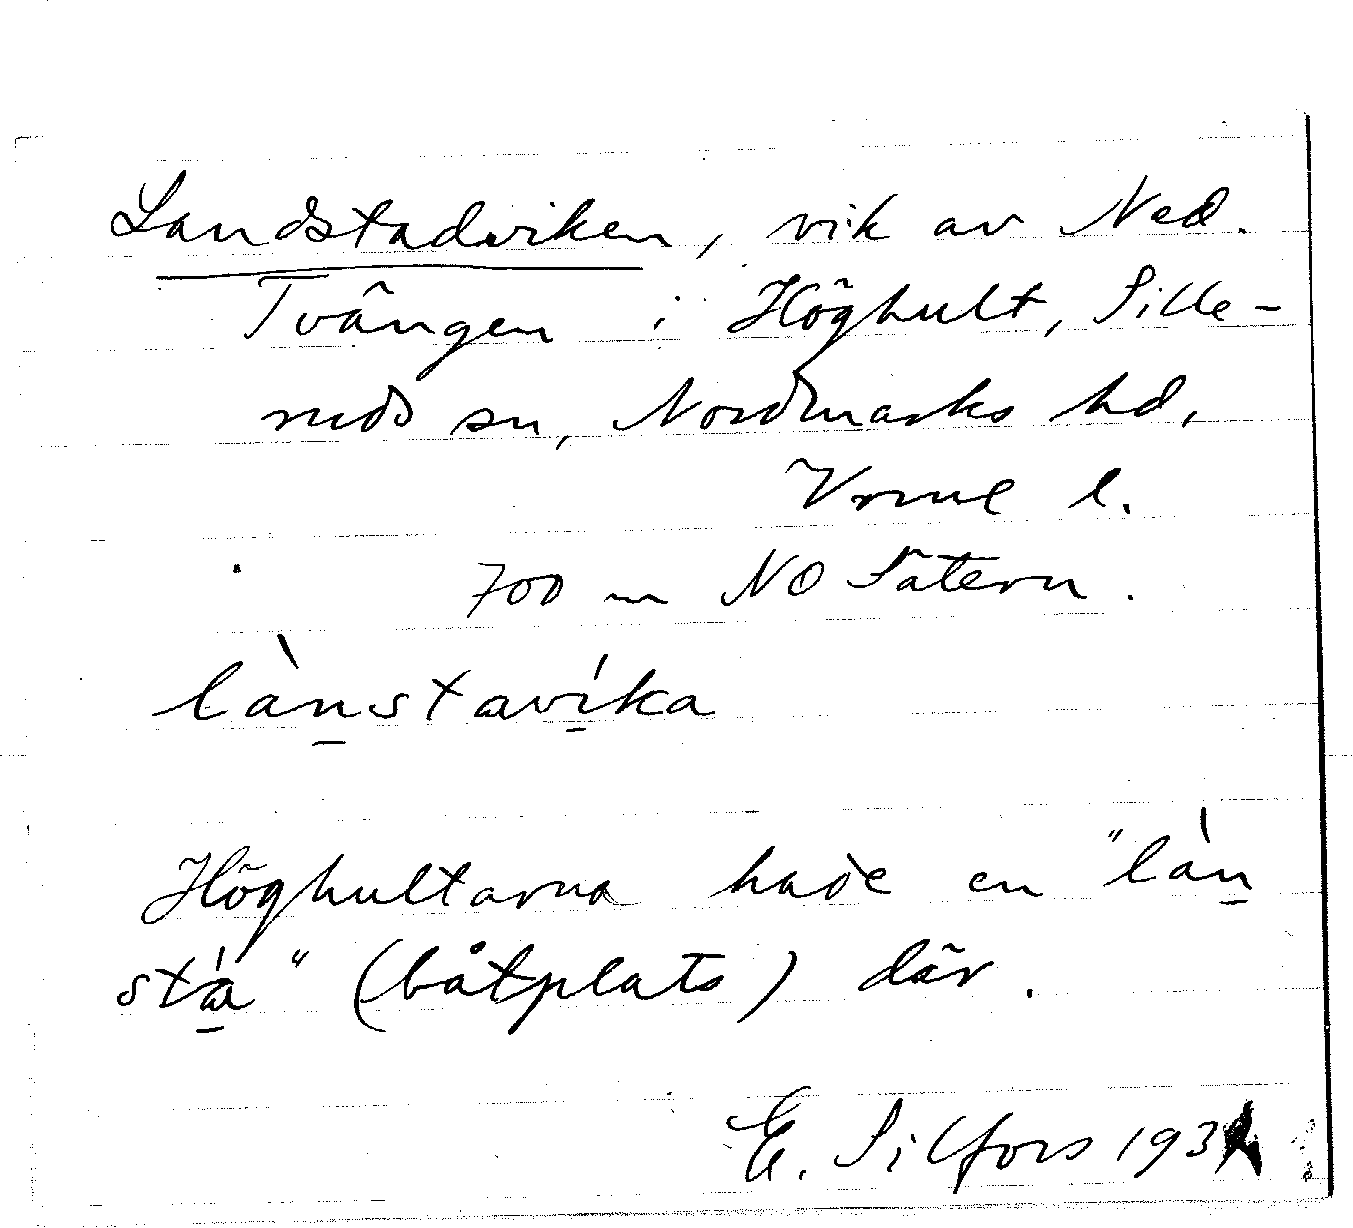 Landstadviken, vik av Ned.
Tvängen i Höghult, Sille-
ruds sn, Nordmarks hd,
Vrml l.
700 m NO Sätern.
lànstavíka
Höghultarna hade en "làn
stá" (båtplats) där.
E. Silfors